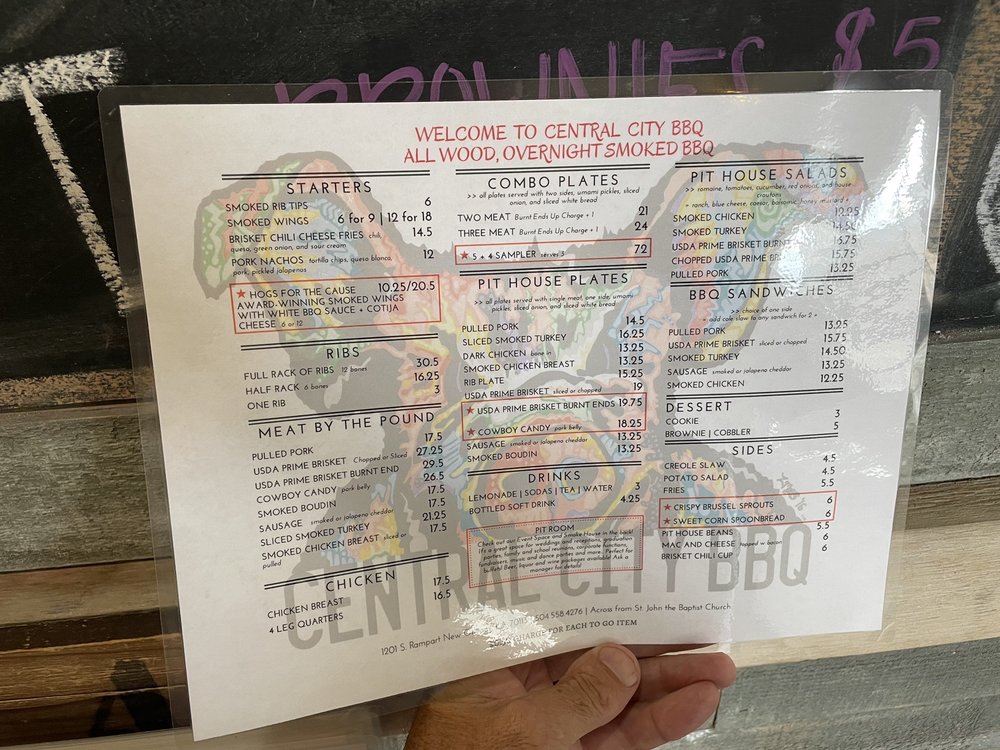 BROWNIES $5
WELCOME TO CENTRAL CITY BBQ
ALL WOOD, OVERNIGHT SMOKED BBQ
STARTERS
SMOKED RIB TIPS 6
SMOKED WINGS 6 for 9 | 12 for 18
BRISKET CHILI CHEESE FRIES chili, 14.5
queso, green onion, and sour cream
PORK NACHOS tortilla chips, queso blanco, 12
pork, pickled jalapenos
★ HOGS FOR THE CAUSE 10.25/20.5
AWARD-WINNING SMOKED WINGS
WITH WHITE BBQ SAUCE + COTIJA
CHEESE 6 or 12
RIBS
FULL RACK OF RIBS 12 bones 30.5
HALF RACK 6 bones 16.25
ONE RIB 3
MEAT BY THE POUND
PULLED PORK 17.5
USDA PRIME BRISKET Chopped or Sliced 27.25
USDA PRIME BRISKET BURNT END 29.5
COWBOY CANDY pork belly 26.5
SMOKED BOUDIN 17.5
SAUSAGE smoked or jalapeno cheddar 17.5
SLICED SMOKED TURKEY 21.25
SMOKED CHICKEN BREAST sliced or 17.5
pulled
CHICKEN
CHICKEN BREAST 17.5
4 LEG QUARTERS 16.5
COMBO PLATES
>> all plates served with two sides, umami pickles, sliced
onion, and sliced white bread
TWO MEAT Burnt Ends Up Charge + 1 21
THREE MEAT Burnt Ends Up Charge + 1 24
★ 5 + 4 SAMPLER serves 3 72
PIT HOUSE PLATES
>> all plates served with single meat, one side, umami
pickles, sliced onion, and sliced white bread
PULLED PORK 14.5
SLICED SMOKED TURKEY 16.25
DARK CHICKEN bone in 13.25
SMOKED CHICKEN BREAST 13.25
RIB PLATE 15.25
USDA PRIME BRISKET sliced or chopped 19
★ USDA PRIME BRISKET BURNT ENDS 19.75
★ COWBOY CANDY pork belly 18.25
SAUSAGE smoked or jalapeno cheddar 13.25
SMOKED BOUDIN 13.25
DRINKS
LEMONADE | SODAS | TEA | WATER 3
BOTTLED SOFT DRINK 4.25
PIT ROOM
Check out our Event Space and Smoke House in the back!
It's a great space for weddings and receptions, graduation
parties, family and school reunions, corporate events,
fundraisers, music and dance parties and more. Perfect for
buffets! Beer, liquor and wine packages available! Ask a
manager for details!
PIT HOUSE SALADS
>> romaine, tomatoes, cucumber, red onions, and house
croutons
+ ranch, blue cheese, caesar, balsamic, honey mustard +
SMOKED CHICKEN 12.25
SMOKED TURKEY 14.50
USDA PRIME BRISKET BURNT 16.75
CHOPPED USDA PRIME 15.75
PULLED PORK 13.25
BBQ SANDWICHES
>> choice of one side
+ add cole slaw to any sandwich for 2 +
PULLED PORK 13.25
USDA PRIME BRISKET sliced or chopped 15.75
SMOKED TURKEY 14.50
SAUSAGE smoked or jalapeno cheddar 13.25
SMOKED CHICKEN 12.25
DESSERT
COOKIE 3
BROWNIE | COBBLER 5
SIDES
CREOLE SLAW 4.5
POTATO SALAD 4.5
FRIES 5.5
★ CRISPY BRUSSEL SPROUTS 6
★ SWEET CORN SPOONBREAD 6
PIT HOUSE BEANS 5.5
MAC AND CHEESE topped w bacon 6
BRISKET CHILI CUP 6
CENTRAL CITY BBQ
1201 S. Rampart New LA 70113 504.558.4276 | Across from St. John the Baptist Church
CHARGE FOR EACH TO GO ITEM